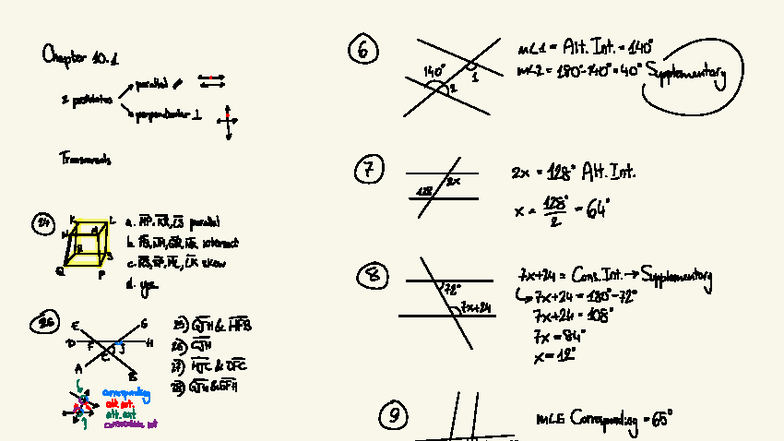 Chapter 10.1
2 postulates
parallel //
perpendicular ⊥
Transversals
24
K L
N M
R S
Q P
a.
parallel
b.
intersect
c.
skew
d. yes
26
E G
D F J H
C
A B
25) & HFB
26)
27) & DFC
28)
corresponding
alt. int.
alt. ext
consecutive int
6
140°
1
2
m∠1 = Alt. Int. = 140°
m∠2 = 180°-140° = 40° Supplementary
7
128
2x
2x = 128° Alt. Int.
x = 128°/2 = 64°
8
72°
7x+24
7x+24 = Cons. Int. → Supplementary
7x+24 = 180°-72°
7x+24 = 108°
7x = 84°
x = 12°
9
Corresponding = 65°